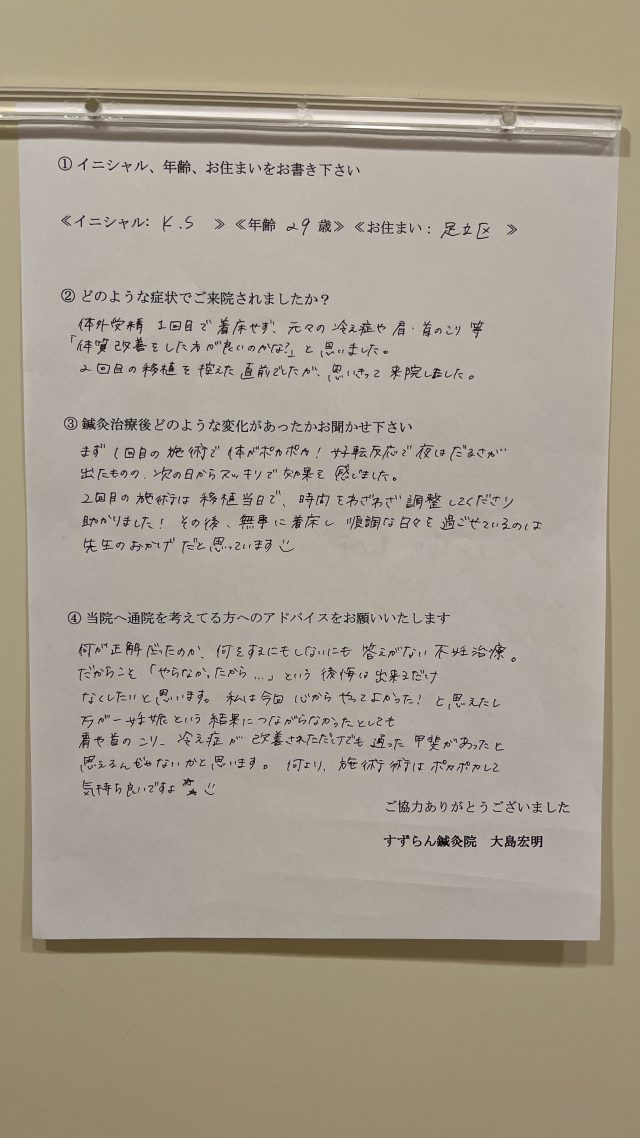 ① イニシャル、年齢、お住まいをお書き下さい
≪イニシャル: K.S ≫ ≪年齢 29 歳≫ ≪お住まい: 足立区 ≫
② どのような症状でご来院されましたか？
体外受精 1回目で着床せず、元々の冷え症や肩・首のこり等
「体質改善をした方が良いのかな?」と思いました。
2回目の移植を控えた直前でしたが、思いきって来院しました。
③ 鍼灸治療後どのような変化があったかお聞かせ下さい
まず1回目の施術で体がポカポカ! 好転反応で夜はだるさが
出たものの、次の日からスッキリで効果を感じました。
2回目の施術は移植当日で、時間をわざわざ調整してくださり
助かりました! その後、無事に着床し順調な日々を過ごせているのは
先生のおかげだと思っています
④ 当院へ通院を考えてる方へのアドバイスをお願いいたします
何が正解だったのか、何をするにもしないにも答えがない不妊治療。
だからこそ「やらなかったから…」という後悔は出来るだけ
なくしたいと思います。私は今回心からやってよかった! と思えたし
万が一妊娠という結果につながらなかったとしても
肩や首のこり、冷え症が改善されただけでも通った甲斐があったと
思えるんじゃないかと思います。何より、施術後はポカポカして
気持ち良いですよ
ご協力ありがとうございました
すずらん鍼灸院 大島宏明